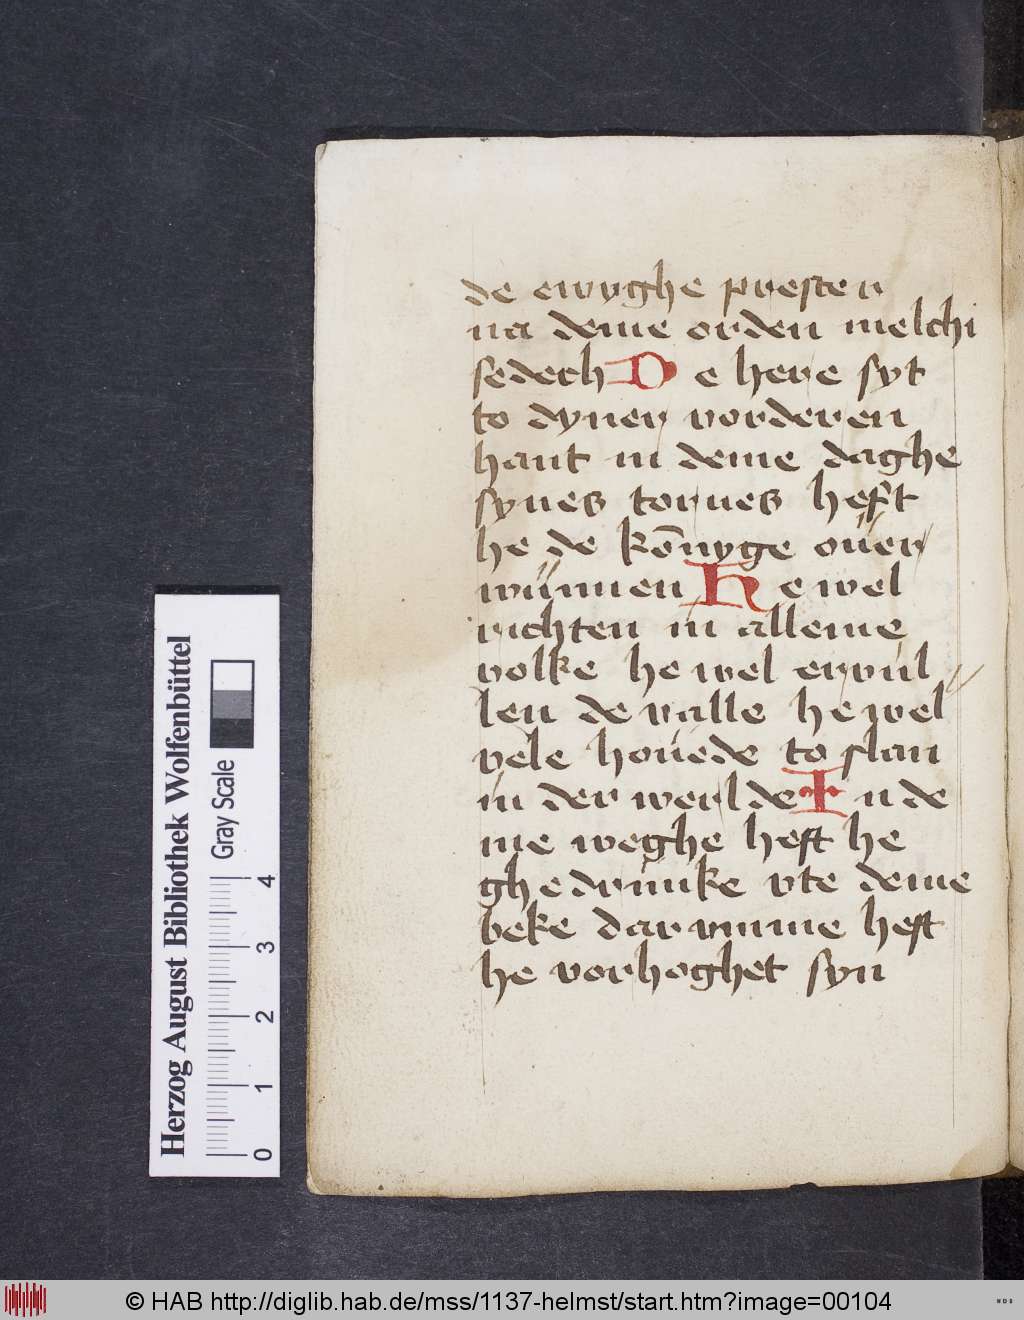 de ewyghe prester
na deme orden melchi
sedech De here syt
to dyner vorderen
hant in deme daghe
synes tornes heft
he de kōnyge ouer
wunnen He wel
richten in alleme
volke he wel ervul
len de valle he wel
vele houede to slan
in der werlde In de
me weghe heft he
ghedrunke vte deme
beke dar vmme heft
he vorhoghet syn
Herzog August Bibliothek Wolfenbüttel
Gray Scale
0 1 2 3 4
© HAB http://diglib.hab.de/mss/1137-helmst/start.htm?image=00104